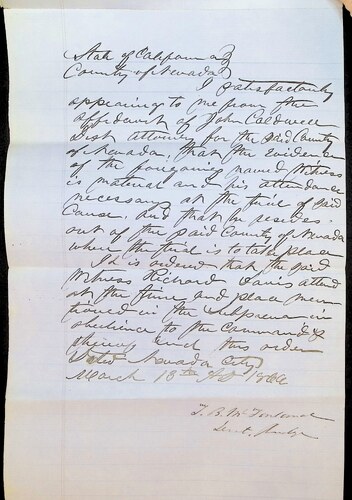 State of California }
County of Nevada }
It Satisfactorily
appearing to me from the
affidavit of John Caldwell
Dist attorney for the said County
of Nevada, that the evidence
of the foregoing named Witness
is material and his attendance
necessary at the trial of said
Cause. and that he resides
out of the said County of Nevada
where the trial is to take place
It is ordered that the said
Witness Richard Davis attend
at the time and place men
tioned in the Subpoena in
obedience to the Command of
this order
Nevada City
March 18th AD
T. B. Mc
Judge